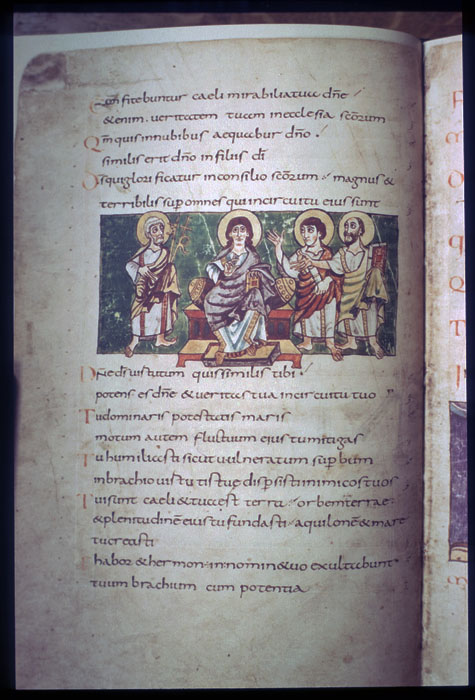 Confitebuntur caeli mirabilia tua dn̄e
& enim ueritatem tuam in ecclesia sc̄orum
Qm̄ quis in nubibus aequabur dn̄o
similis erit dn̄o in filiis dī
Ds̄ qui glorificatur in consilio sc̄orum magnus &
terribilis sup̄ omnes qui in circuitu eius sunt
Dn̄e ds̄ uirtutum quis similis tibi
potens es dn̄e & ueritas tua in circuitu tuo
Tu dominaris potestatis maris
motum autem fluctuum eius tu mitigas
Tu humiliasti sicut uulneratum sup̄bum
in brachio uirtutis tuae disp̄sisti inimicos tuos
Tui sunt caeli & tua est terra orbem terrae
& plenitudinē eius tu fundasti aquilonē & mare
tu creasti
Thabor & hermon in nomine tuo exultabunt
tuum brachium cum potentia